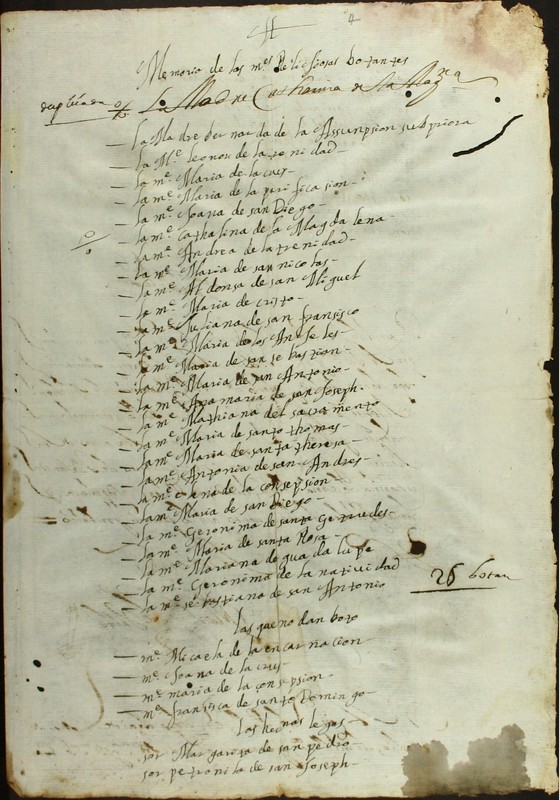 4
Memoria de las m.es Religiosas botantes
duplicada % La Madre Catharina de la Mag.na
— La Madre bernarda de la Assumpsion subpriora
— la M.e leonor de la trenidad—
— la m.e Maria de la crus—
— la m.e Maria de la purificasion—
— la m.e Joana de san Diego—
% — la m.e Cathalina de la Magdalena—
— la m.e Andrea de la trenidad—
— la m.e Maria de san nicolas—
— la m.e Aldonsa de san Miguel
— la m.e Maria de cristo—
— la m.e Juliana de san fransisco
— la m.e Maria de los Anseles—
— la m.e Maria de san sebastian—
— la m.e Maria de san Antonio—
— la m.e Ana maria de san Joseph—
— la m.e Mathiana del sacramento
— la m.e Maria de santo thomas—
— la m.e Maria de santa theresa—
— la m.e Antonia de san Andres—
— la m.e ana de la consepsion
— la m.e Maria de san Diego—
— la m.e Geronima de santa Getrudes—
— la m.e Maria de santa Rosa—
— la m.e Mariana de guadalupe
— la m.e Geronima de la natividad
— la m.e sebastiana de san Antonio
26 botan
las que no dan boto
— m.e Micaela de la encarnacion
— m.e Joana de la crus—
— m.e maria de la consepsion—
— m.e fransisca de santo Domingo—
las her.nas legas—
sor Margarita de san pedro—
sor petronila de san Joseph—